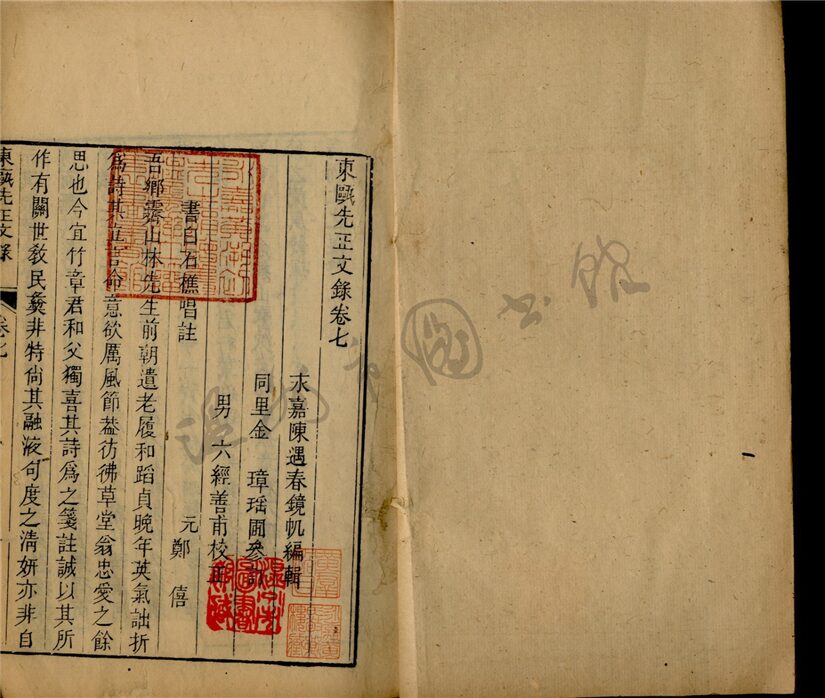 東甌先正文錄卷七
永嘉陳遇春鏡帆編輯
同里金璋瑶圃參訂
男六經善甫校正
書白石樵唱註
元鄭僖
吾鄉霽山林先生前朝遺老履和蹈貞晚年英氣詘折
爲詩其立言命意欲厲風節葢彷彿草堂翁忠愛之餘
思也今宜竹章君和父獨喜其詩爲之箋註誠以其所
作有關世教民彝非特尙其融液句度之清妍亦非自
東甌先正文錄
卷七
溫州市圖書館